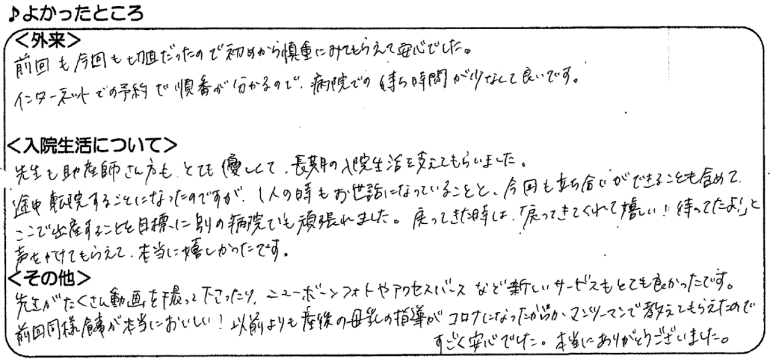 ♪よかったところ
<外来>
前回も今回も切迫だったので初めから慎重にみてもらえて安心でした。
インターネットでの予約で順番が分かるので、病院での待ち時間が少なくて良いです。
<入院生活について>
先生も助産師さん方も、とても優しくて、長期の入院生活を支えてもらいました。
途中転院することになったのですが、1人の時もお世話になっていることと、今回も立ち合いができることも含めて、
ここで出産することを目標に別の病院でも頑張れました。戻ってきた時は、「戻ってきてくれて嬉しい!待ってたよ!」と
声をかけてもらえて、本当に嬉しかったです。
<その他>
先生がたくさん動画を撮って下さったり、ニューボーンフォトやアクセスバースなど新しいサービスもとても良かったです。
前回同様食事が本当においしい!以前よりも産後の母乳の指導がコロナになったからかマンツーマンで教えてもらえたので
すごく安心でした。本当にありがとうございました。